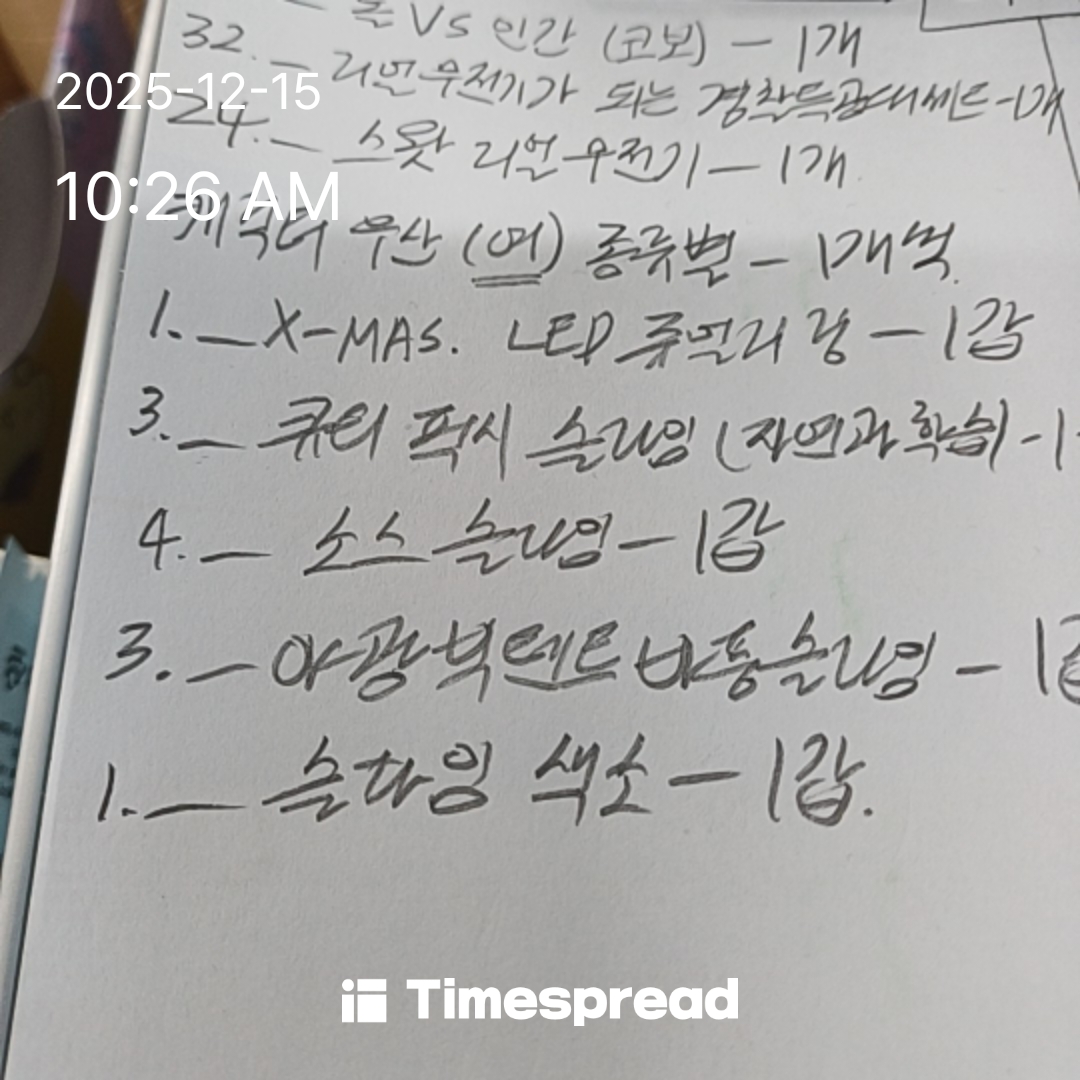 VS 인간 (코보) - 1개
32. - 리얼무전기가 되는 경찰특공대세트 - 1개
2025-12-15
24. - 스왓 리얼무전기 - 1개
10:26 AM
캐릭터 우산 (여) 종류별 - 1개씩
1. - X-MAS. LED 쥬얼리 링 - 1갑
3. - 큐티 픽시 슬라임 (자연과학습) - 1
4. - 소스 슬라임 - 1갑
3. - 야광빅텐트바통슬라임 - 1갑
1. - 슬라임 색소 - 1갑.
Timespread